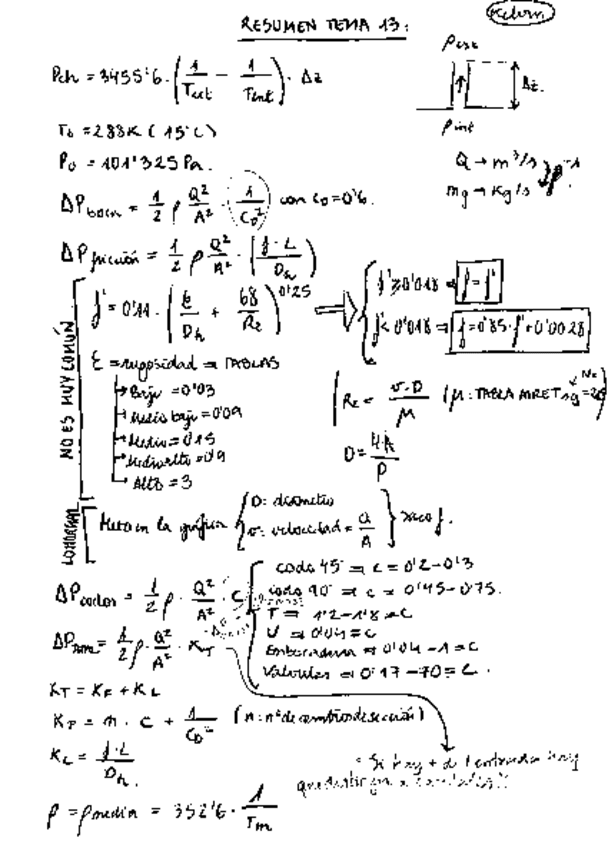 RESUMEN TEMA 13:
Pch = 3455'6 · (1/Text − 1/Tint) · Δz
ρext
Δz.
ρint
T0 = 288K (15°C)
P0 = 101'325 Pa.
Q → m³/s
mg → Kg/s
ρ
ΔP boca = 1/2 ρ Q²/A² · 1/CD² con CD = 0'6.
ΔP fricción = 1/2 ρ Q²/A² · (f·L/Dh)
NO ES MUY COMÚN
f' = 0'11 · (ε/Dh + 68/Re)^0'25
f' ≥ 0'018 ⇒ f = f'
f' < 0'018 ⇒ f = 0'85·f' + 0'0028
ε = rugosidad ⇒ TABLAS
Bajo = 0'03
Medio bajo = 0'09
Medio = 0'15
Medio alto = 0'9
Alto = 3
Re = v·D/μ (μ: TABLA AIRE
D = 4·A/P
Meto en la gráfica
D: diámetro
v: velocidad = Q/A
saco f.
ΔP codos = 1/2 ρ · Q²/A² · C
codo 45° ⇒ c = 0'2-0'3
codo 90° ⇒ c = 0'45-0'75.
T ⇒ 1'2-1'8 = C
U ⇒ 0'04 = c
Embocadura ⇒ 0'04-1 = C
Válvulas ⇒ 0'17-70 = C.
= 1/2 ρ · Q²/A² · KT
KT = KF + KL
KF = n · c + 1/CD² (n: nº de cambios de sección)
KL = f·L/Dh.
* Si hay + d 1 entrada hay
que
ρ = ρmedia = 352'6 · 1/Tm